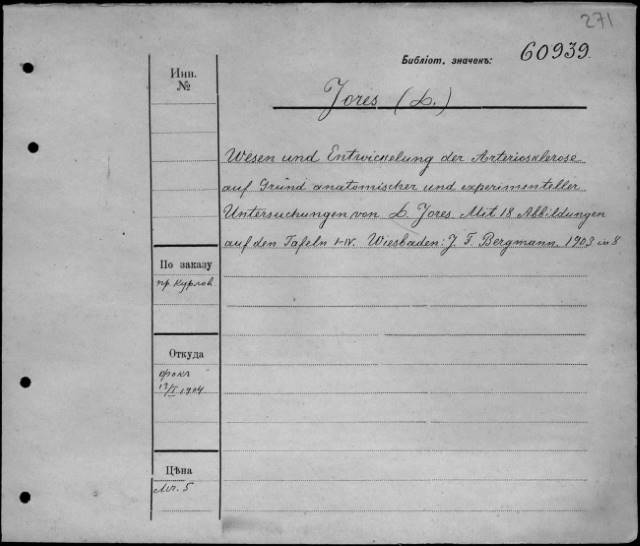 271
Библіот. значекъ: 60939.
Инв.
№
Jores (L.)
Wesen und Entwickelung der Arteriosklerose
auf Grund anatomischer und experimenteller
Untersuchungen von L. Jores. Mit 18 Abbildungen
auf den Tafeln I-IV. Wiesbaden: J. F. Bergmann, 1903 in 8
По заказу
пр. Курлов
Откуда
13/I 1904
Цѣна
Mr. 5